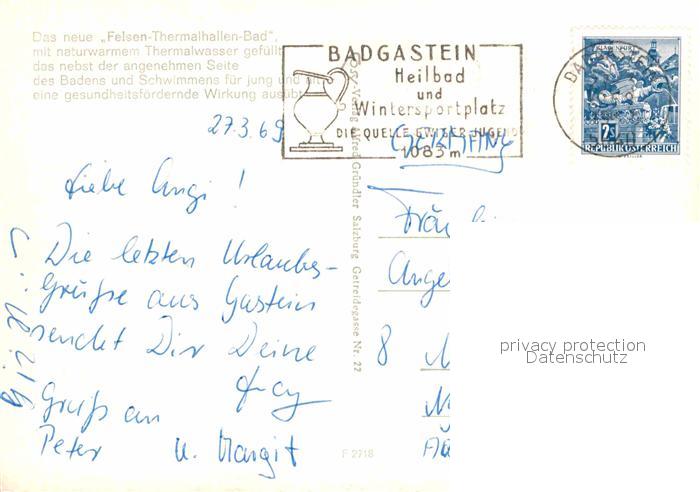 Das neue „Felsen-Thermalhallen-Bad“,
mit naturwarmem Thermalwasser gefüllt
das nebst der angenehmen Seite
des Badens und Schwimmens für jung und alt
eine gesundheitsfördernde Wirkung ausübt
BADGASTEIN
Heilbad
und
Wintersportplatz
DIE QUELLE EWIGER JUGEND
1083 m
2S
REPUBLIK ÖSTERREICH
GERMANY
27.3.69
Liebe Angi!
Die letzten Urlaubs-
grüße aus Gastein
sendet Dir Deine
Gruß an
Peter u. Margit
Verlag Alfred Gründler Salzburg Getreidegasse Nr. 22
F 2718
Fräu
Ange
8
privacy protection
Datenschutz